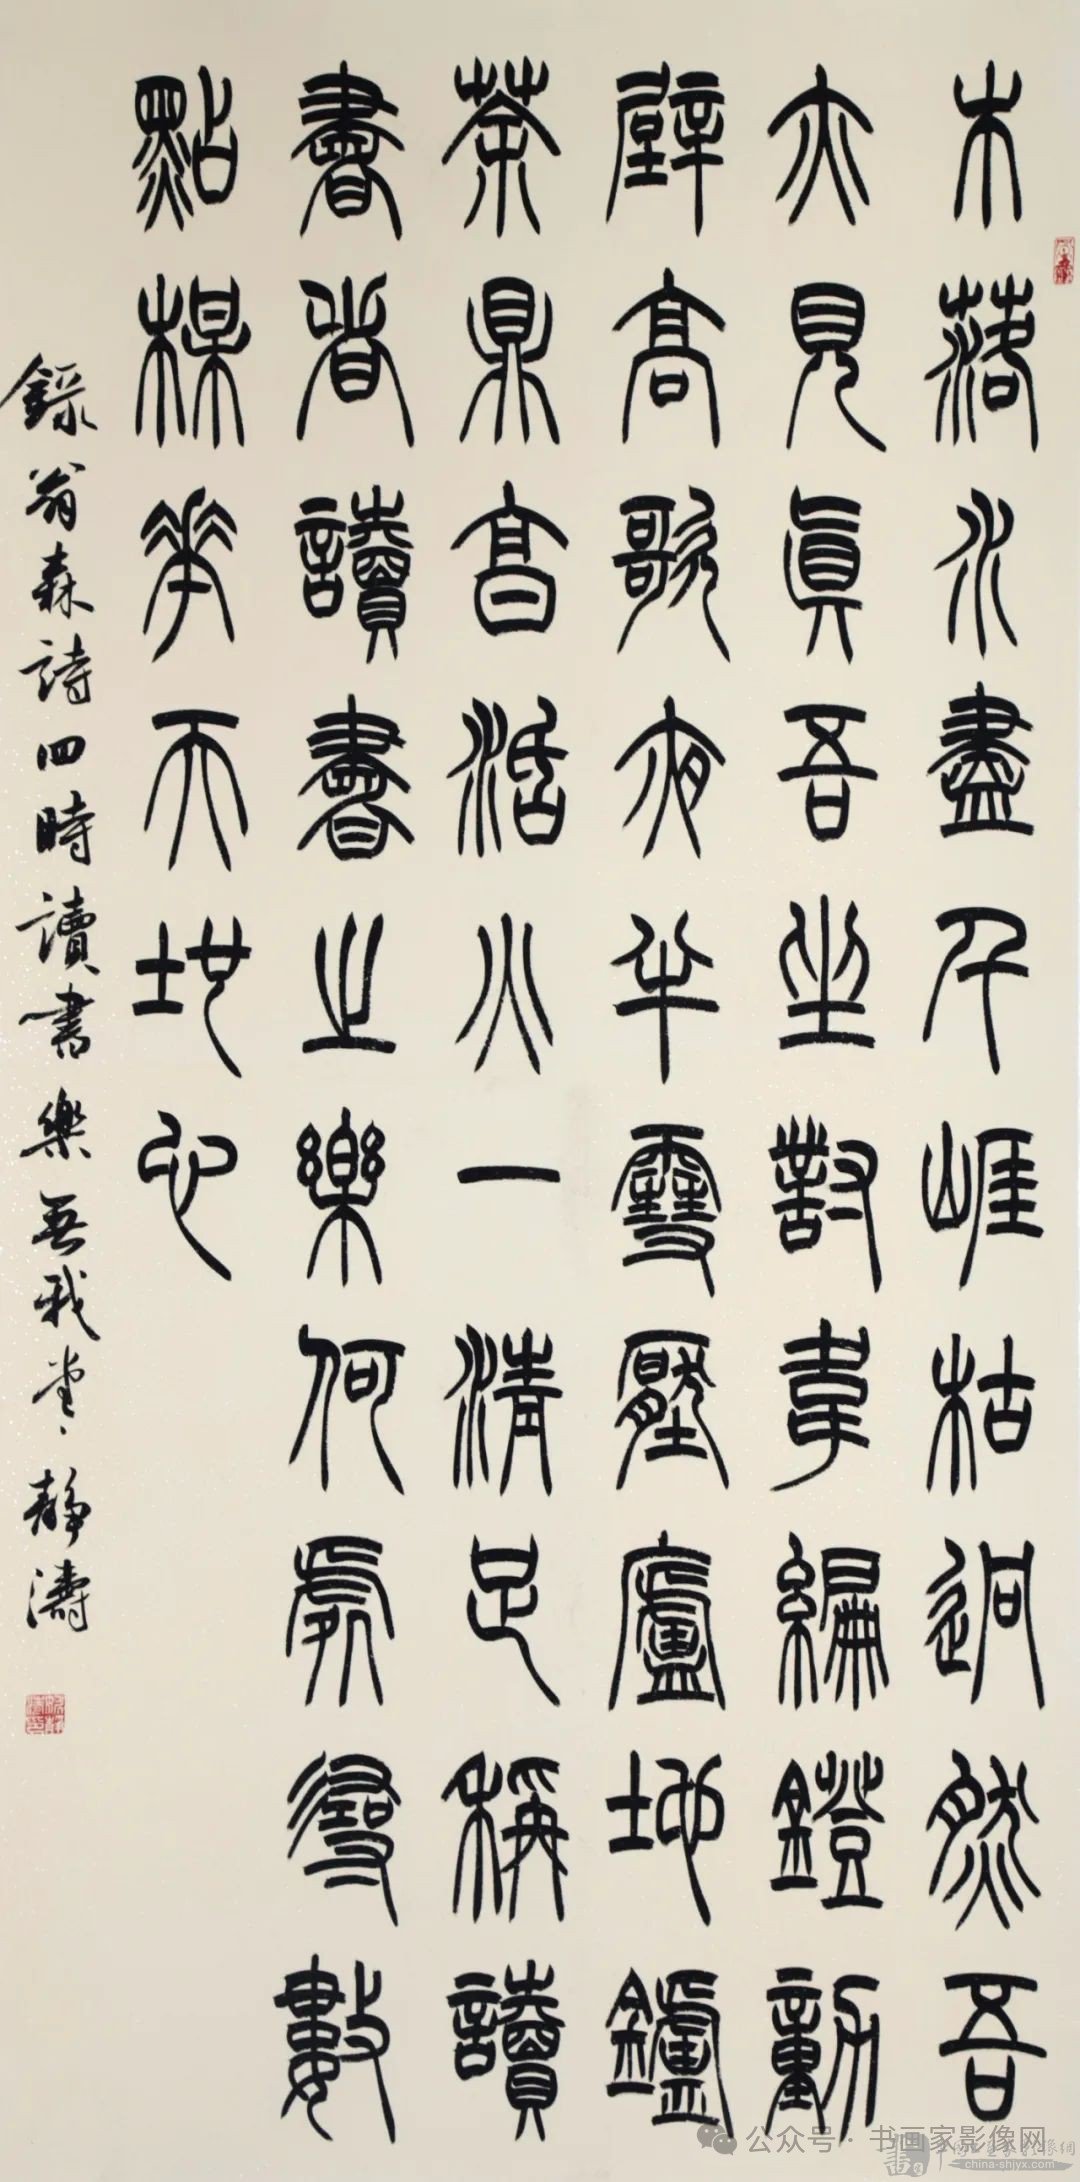 木落水盡千崖枯迥然吾
亦見眞吾坐對韋編鐙動
壁高歌夜半雪壓廬地鑪
茶鼎烹活火一清足稱讀
書者讀書之樂何處尋數
點楳花天地心
錄翁森詩四時讀書樂無我堂靜濤
公众号 · 书画家影像网
china-shjyx.com